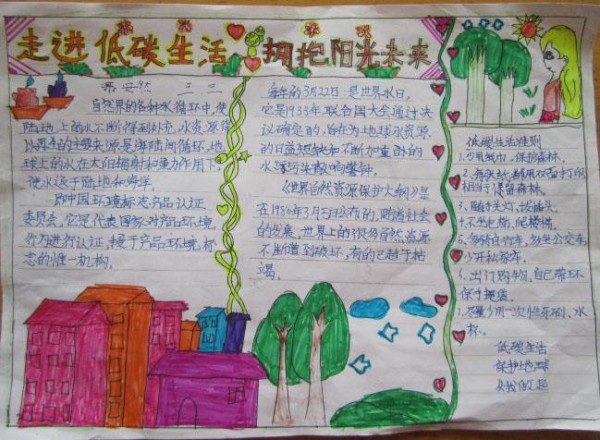 走进低碳生活 拥抱阳光未来
三二
自然界的各种水循环中,使
陆地上的水不断得到补充,水资源得
以再生的主要来源是海陆间循环,地
球上的水在太阳辐射和重力作用下,
使水运于陆地和海洋。
中国环境标志产品认证
委员会,它是代表国家对产品环境
行为进行认证,授于产品环境标
志的唯一机构。
每年的3月22日是世界水日,
它是1933年联合国大会通过决
议确定的,旨在为地球水资源
的日益短缺和不断加重的
水污染敲响警钟。
《世界自然资源保护大纲》是
在1980年3月5日公布的,随着社会
的发展,世界上的很多自然资源
不断遭到破坏,有的已趋于枯
竭。
低碳生活准则
1.少用纸巾,保护森林。
2.每张纸都用双面打印
相当于保留森林。
3.随手关灯,拔插头。
4.不坐电梯,爬楼梯。
5.多骑自行车,多坐公交车,
少开私家车。
6.出门购物,自己带环
保手提袋。
7.尽量少用一次性牙刷、水
杯。
低碳生活
保护地球
从我做起